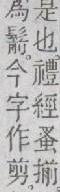 是也禮經蚤揃
爲鬋今字作剪